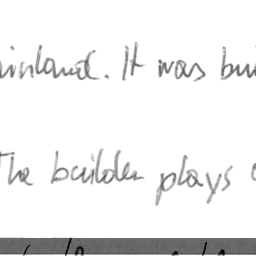 ainland. It was bui
The builder plays